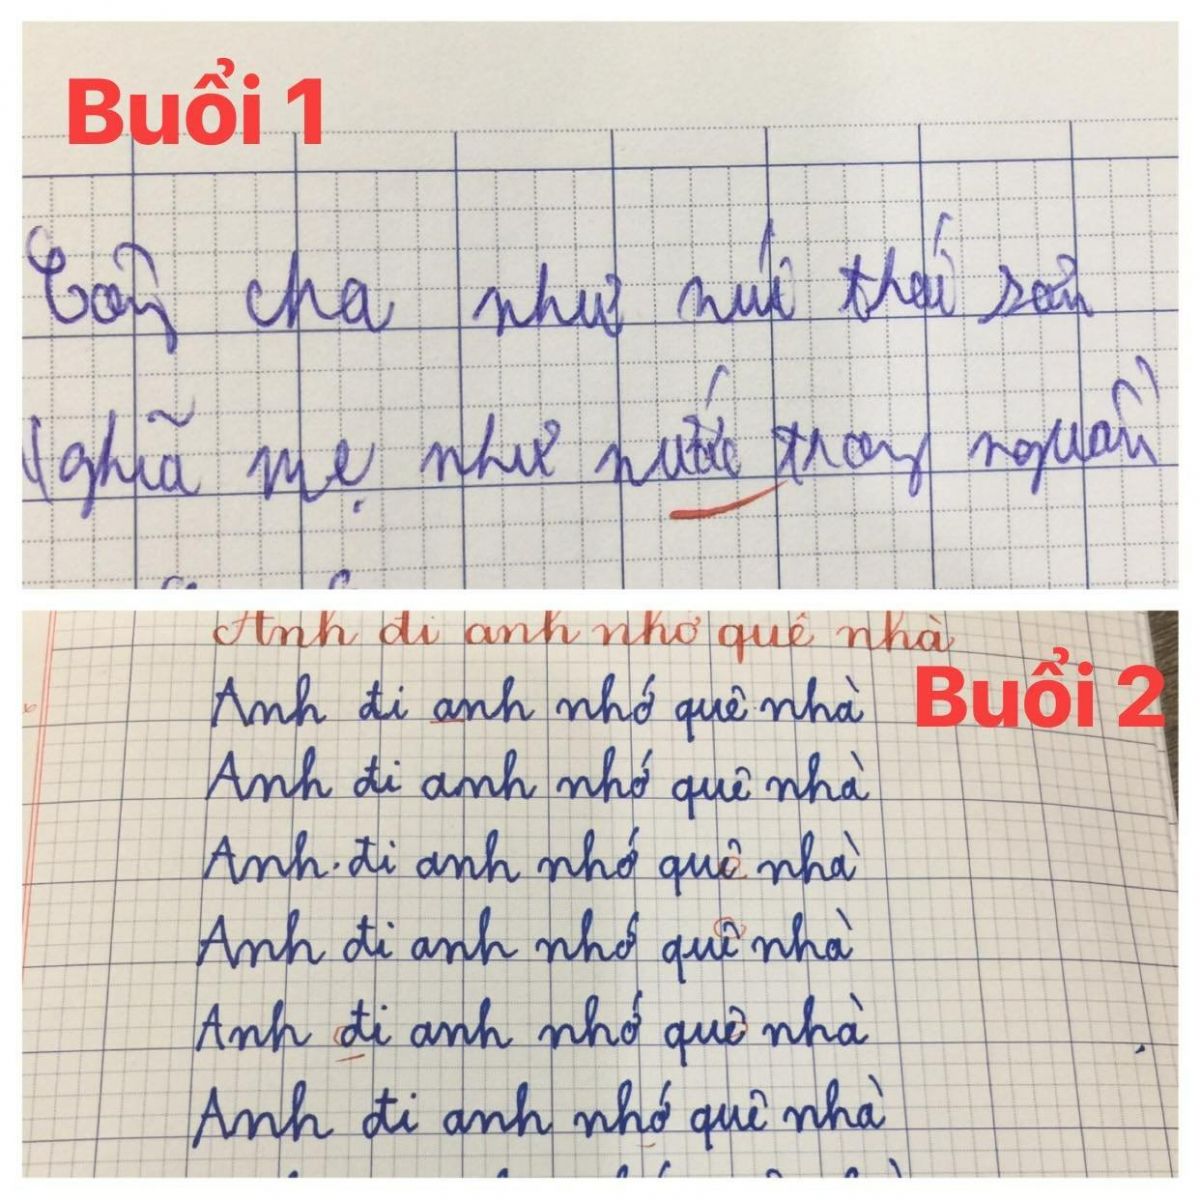 Buổi 1
Công cha như núi thái sơn
Nghĩa mẹ như nước trong nguồn
Anh đi anh nhớ quê nhà
Buổi 2
Anh đi anh nhớ quê nhà
Anh đi anh nhớ quê nhà
Anh đi anh nhớ quê nhà
Anh đi anh nhớ quê nhà
Anh đi anh nhớ quê nhà
Anh đi anh nhớ quê nhà